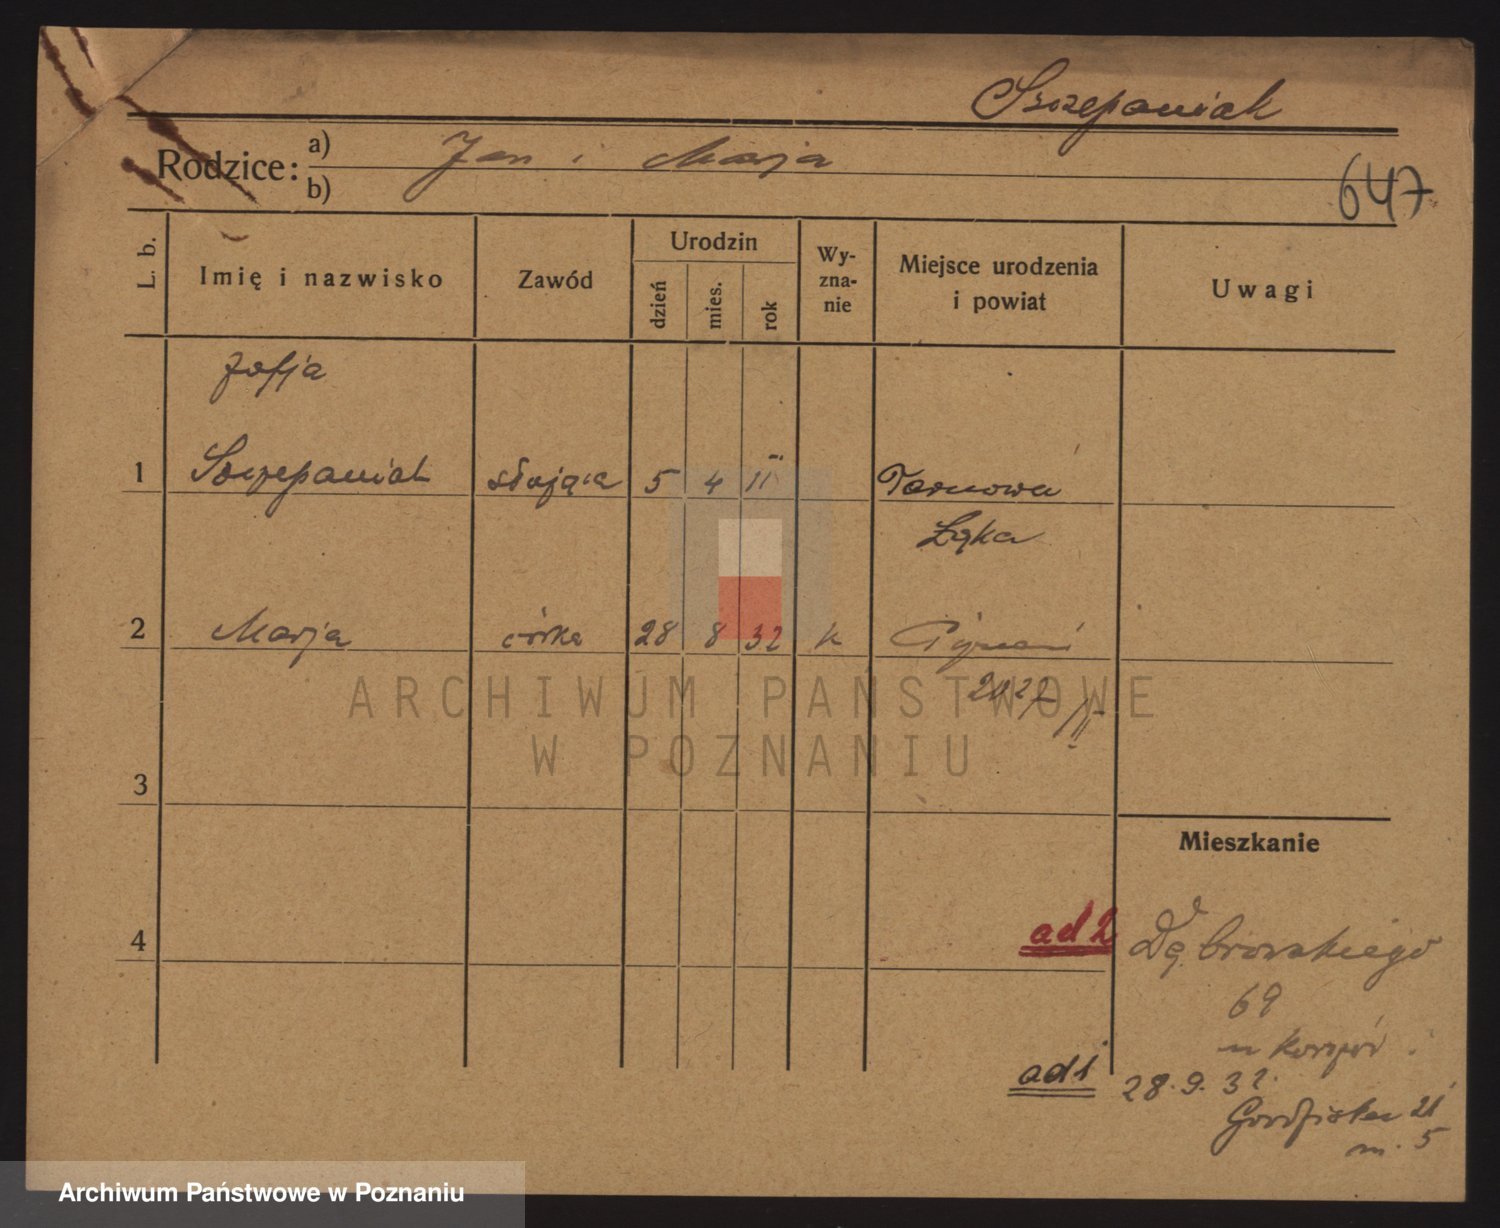 Szczepaniak
Rodzice: a) Jan i Marja
b)
647
L. b.
Imię i nazwisko
Zawód
Urodzin
dzień
mies.
rok
Wy-
zna-
nie
Miejsce urodzenia
i powiat
Uwagi
Zofja
1 Szczepaniak służąca 5 4 11 Tarnowa
Łąka
2 Marja córka 28 8 32 k
3
Mieszkanie
4
ad 2 Dąbrowskiego
69
ad 1 28.9.32.
21
m. 5
ARCHIWUM PAŃSTWOWE
W POZNANIU
Archiwum Państwowe w Poznaniu